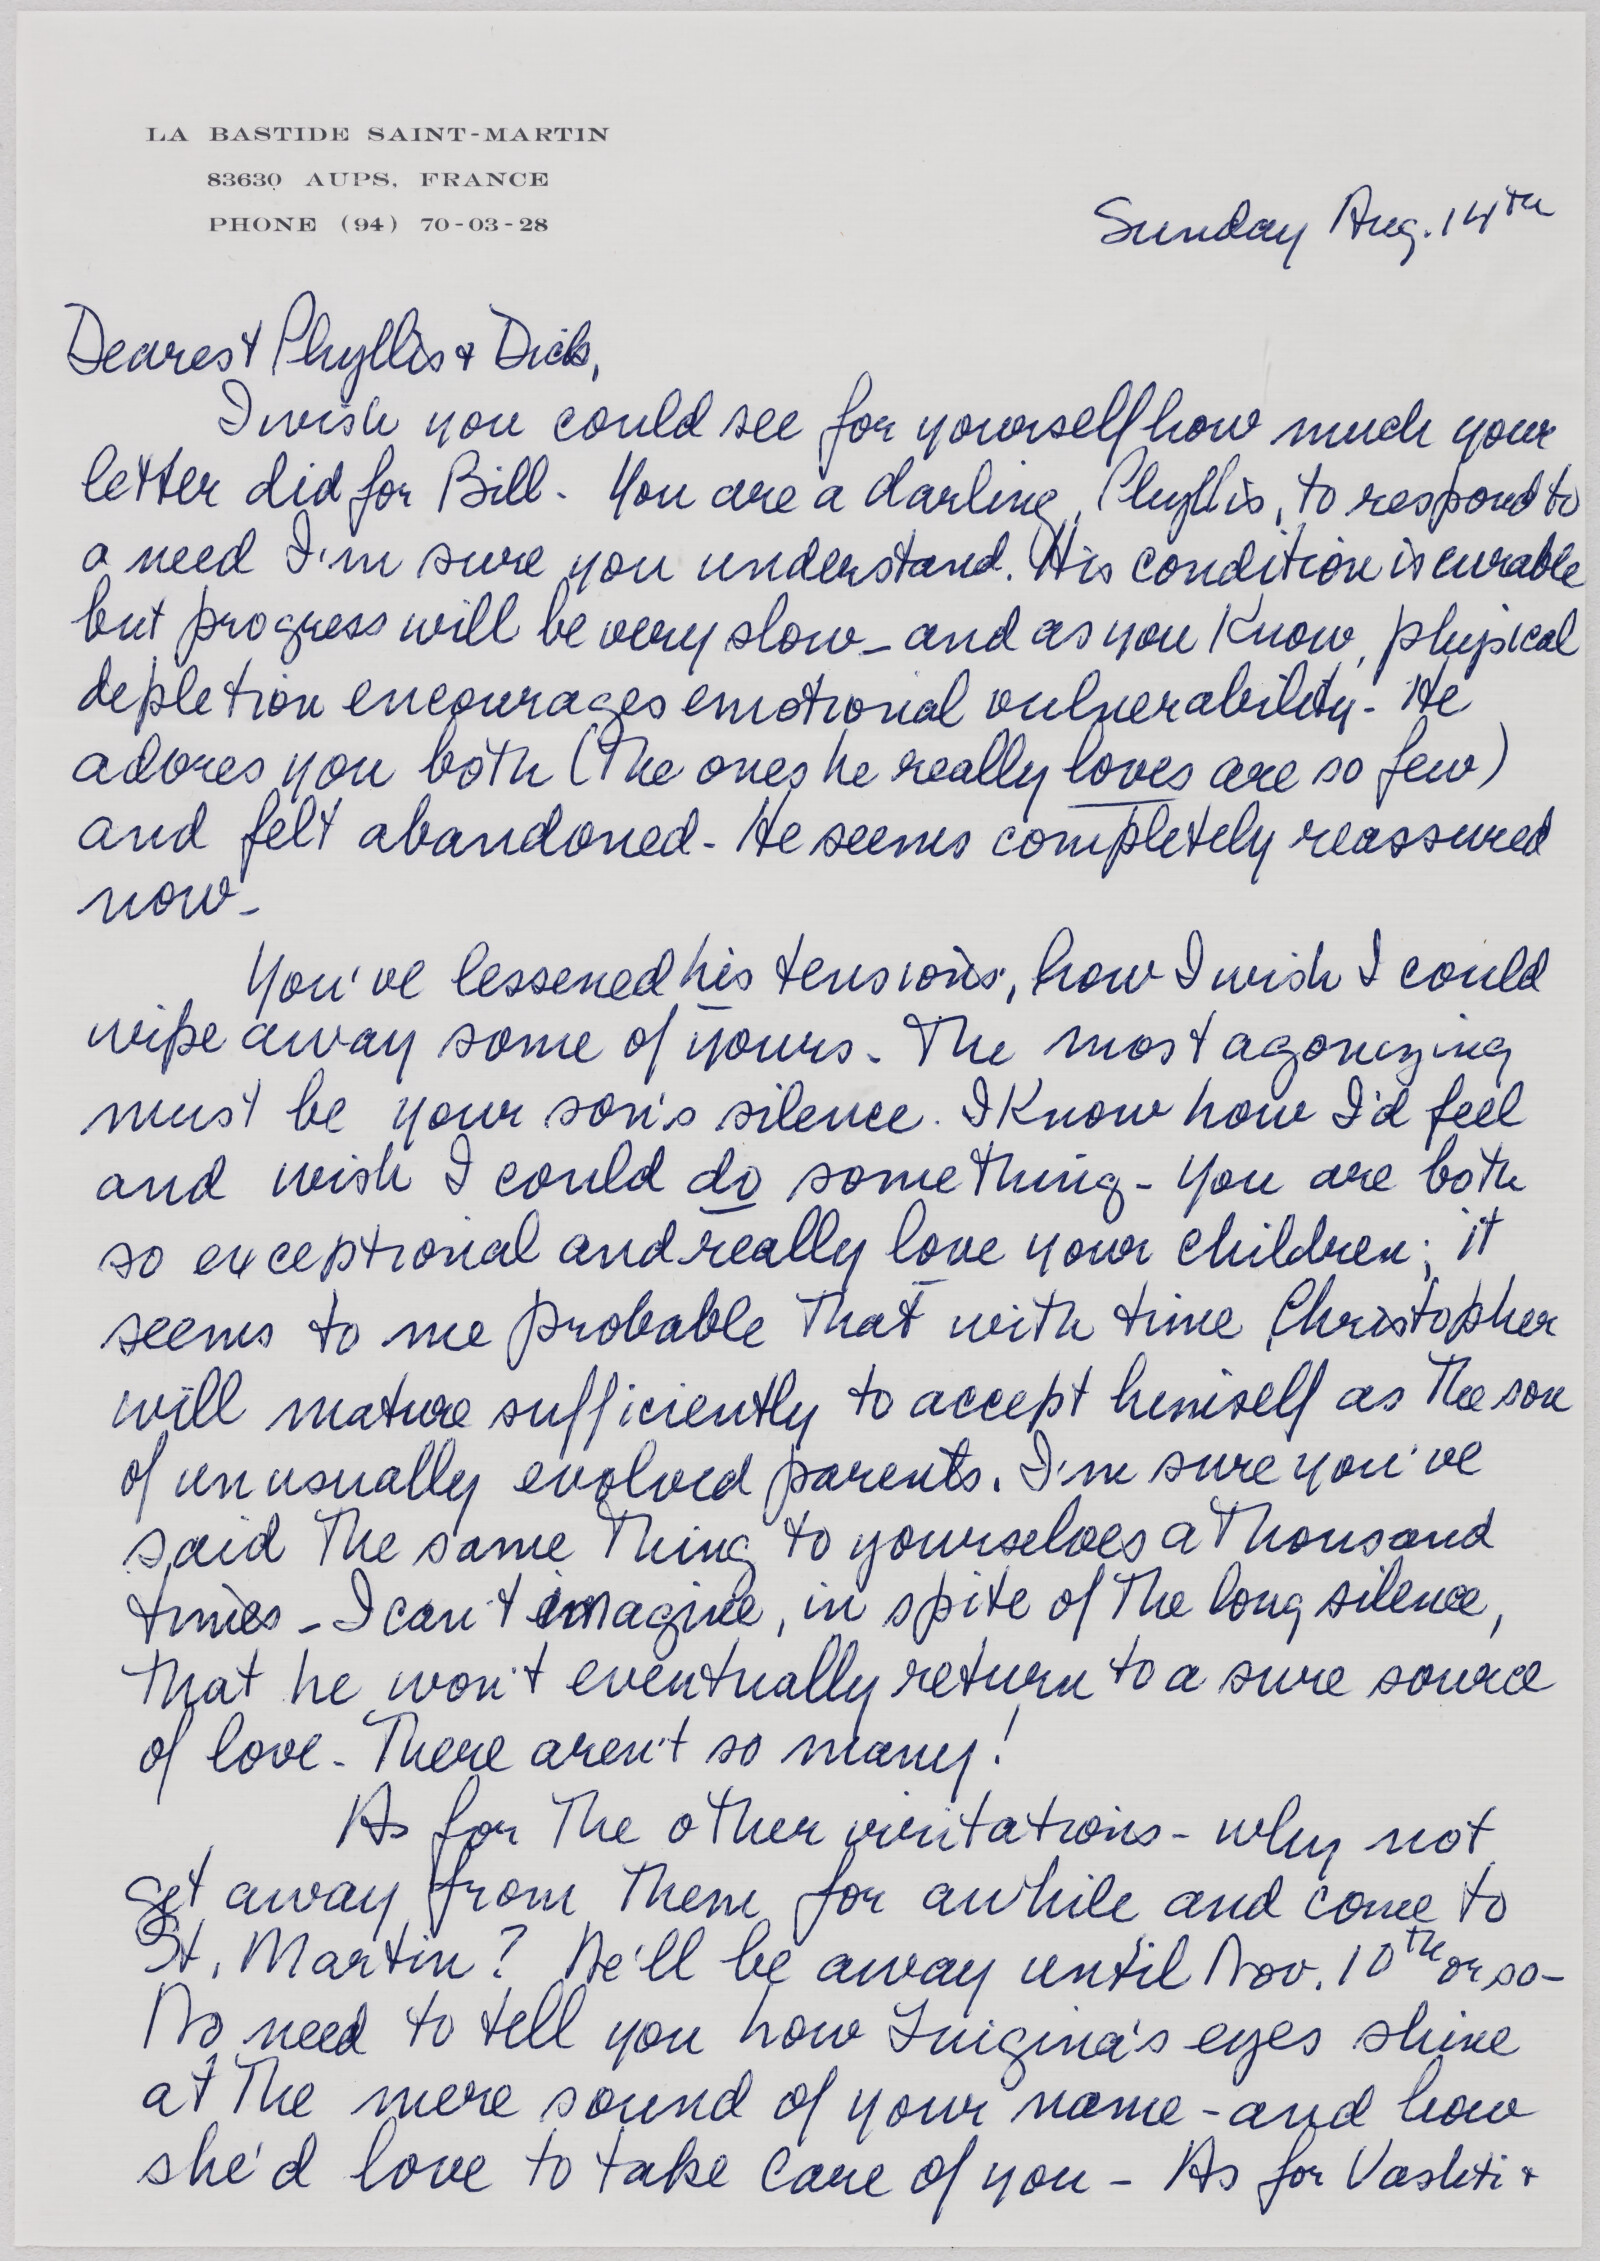 LA BASTIDE SAINT-MARTIN
83630 AUPS, FRANCE
PHONE (94) 70-03-28
Sunday Aug. 14th
Dearest Phyllis & Dick,
I wish you could see for yourself how much your
letter did for Bill - You are a darling, Phyllis, to respond to
a need I'm sure you understand. His condition is curable
but progress will be very slow - and as you know, physical
depletion encourages emotional vulnerability - He
adores you both (The ones he really loves are so few)
and felt abandoned - He seems completely reassured
now -
You've lessened his tensions, how I wish I could
wipe away some of yours - The most agonizing
must be your son's silence. I know how I'd feel
and wish I could do something - You are both
so exceptional and really love your children; it
seems to me probable that with time Christopher
will mature sufficiently to accept himself as the son
of unusually evolved parents. I'm sure you've
said the same thing to yourselves a thousand
times - I can't imagine, in spite of the long silence,
that he won't eventually return to a sure source
of love - There aren't so many!
As for the other irritations - why not
get away from them for awhile and come to
St. Martin? We'll be away until Nov. 10th or so -
No need to tell you how Luigina's eyes shine
at the mere sound of your name - and how
she'd love to take care of you - As for Vashti &